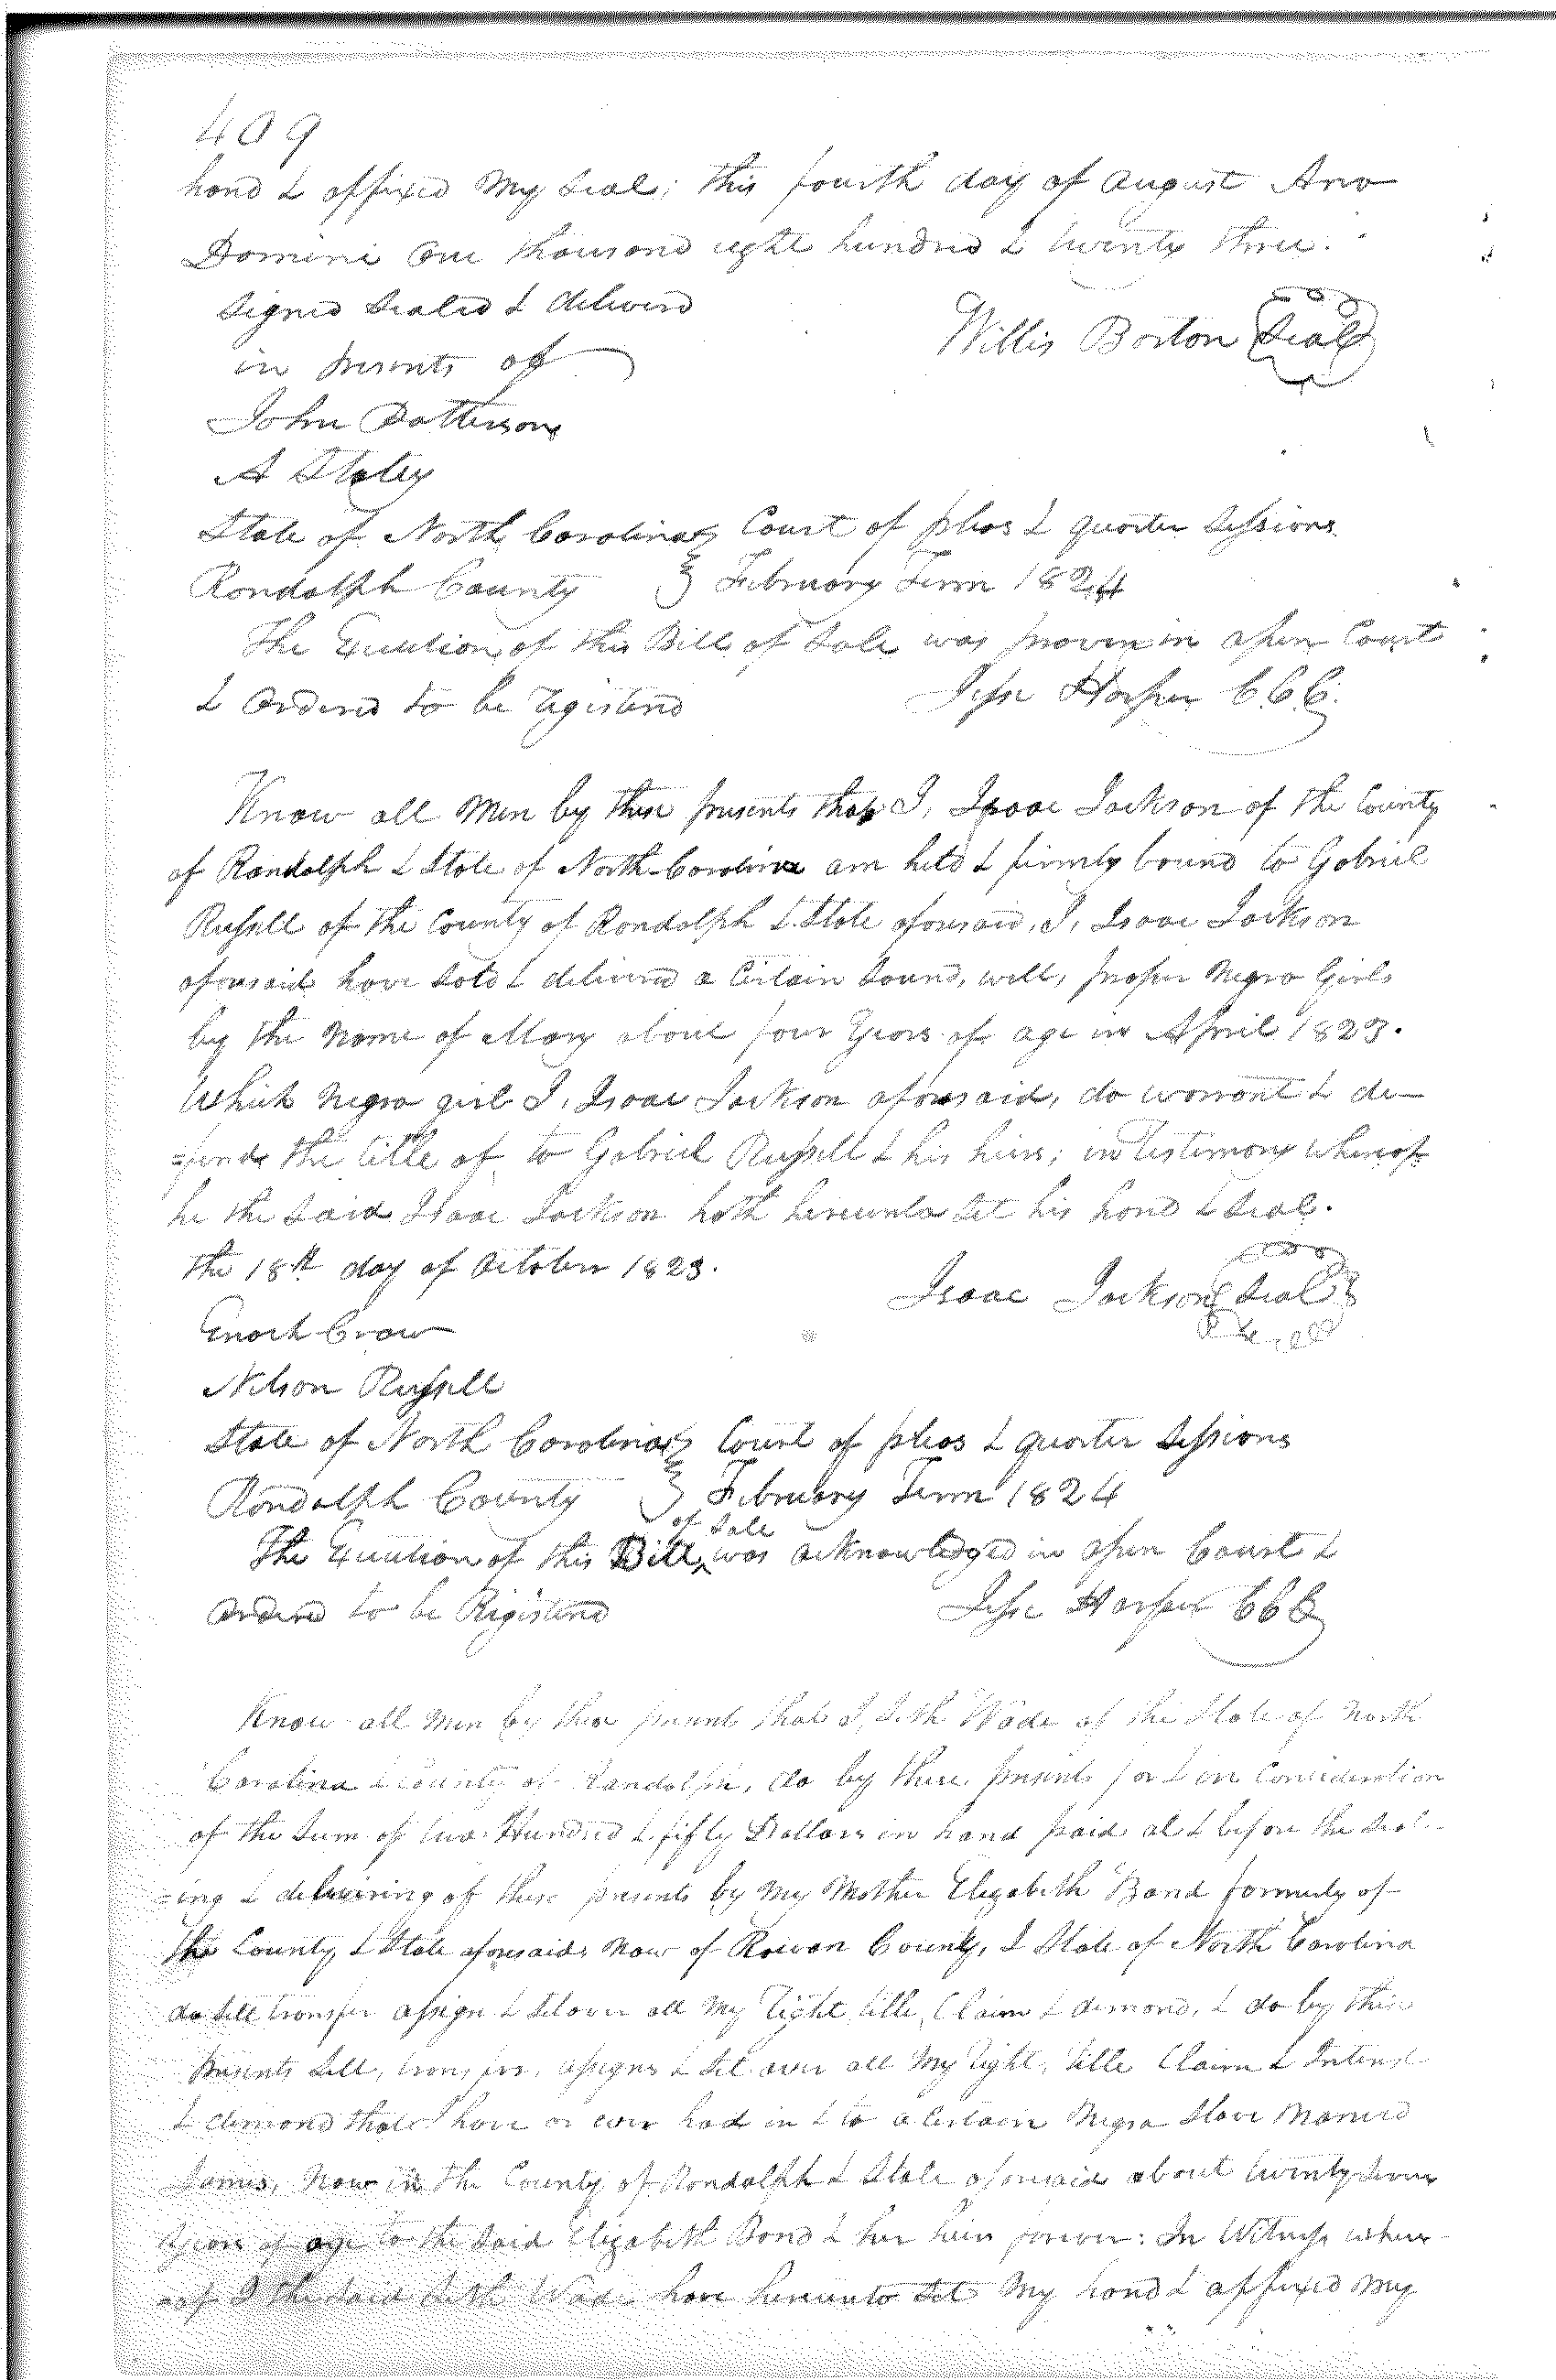 409
hand & affixed my Seal; this fourth day of August Ano
Domini One thousand eight hundred & twenty three.
Signed Sealed & deliverd
in presents of
Willis Borton Seal
John Patterson
A Staley
State of North Carolina Court of pleas & quarter Sessions
Randolph County February Term 1824
The Execution of this Bill of Sale was proven in open Court
& Ordered to be Registerd Jesse Harper C.C.C.
Know all Men by these presents that I, Isaac Jackson of the County
of Randolph & State of North Carolina am held & firmly bound to Gabriel
Russell of the County of Randolph & State aforesaid, I, Isaac Jackson
aforesaid have Sold & deliverd a Certain Sound, well, proper Negro Girl
by the Name of Mary about four Years of age in April 1823.
Which Negro girl I, Isaac Jackson aforesaid, do warrant & de-
=fende the title of to Gabriel Russell & his heirs; in testimony whereof
he the Said Isaac Jackson hath hereunto Set his hand & Seal.
the 18th day of October 1823.
Isaac Jackson Seal
Enoch Craw
Nelson Russell
State of North Carolina Court of pleas & quarter Sessions
Randolph County February Term 1824
The Execution of this Bill of Sale was acknowledged in open Court &
Ordered to be Registerd Jesse Harper CCC
Know all Men by these presents that I, Seth Wade of the State of North
Carolina & County of Randolph, do by these presents for & in Consideration
of the Sum of two Hundred & fifty Dollars in hand paid at & before the Seal-
=ing & delivering of these presents by My Mother Elizabeth Bond formerly of
the County & State aforesaid Now of Rowan County, & State of North Carolina
do Sell transfer assign & Setover all My right, title, Claim & demand, & do by these
Presents Sell, transfer, assign & Set over all My right, title Claim & Interest
& demand that I have or ever had in & to a Certain Negro Slave Named
James, Now in the County of Randolph & State aforesaid about twenty Seven
Years of age to the Said Elizabeth Bond & her heirs forever: In Witness where-
=of I the Said Seth Wade have hereunto Set My hand & affixed My